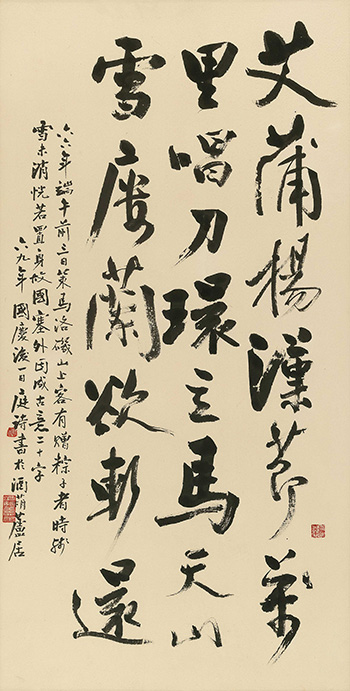 艾蒲楊漢節萬
里唱刀環立馬天山
雪廔蘭欲斬還
六六年端午前三日策馬洛磯山上客有贈粽子者時殘
雪未消恍若置身故國塞外因成古意二十字
六九年國慶後一日庭詩書於酒葫蘆居